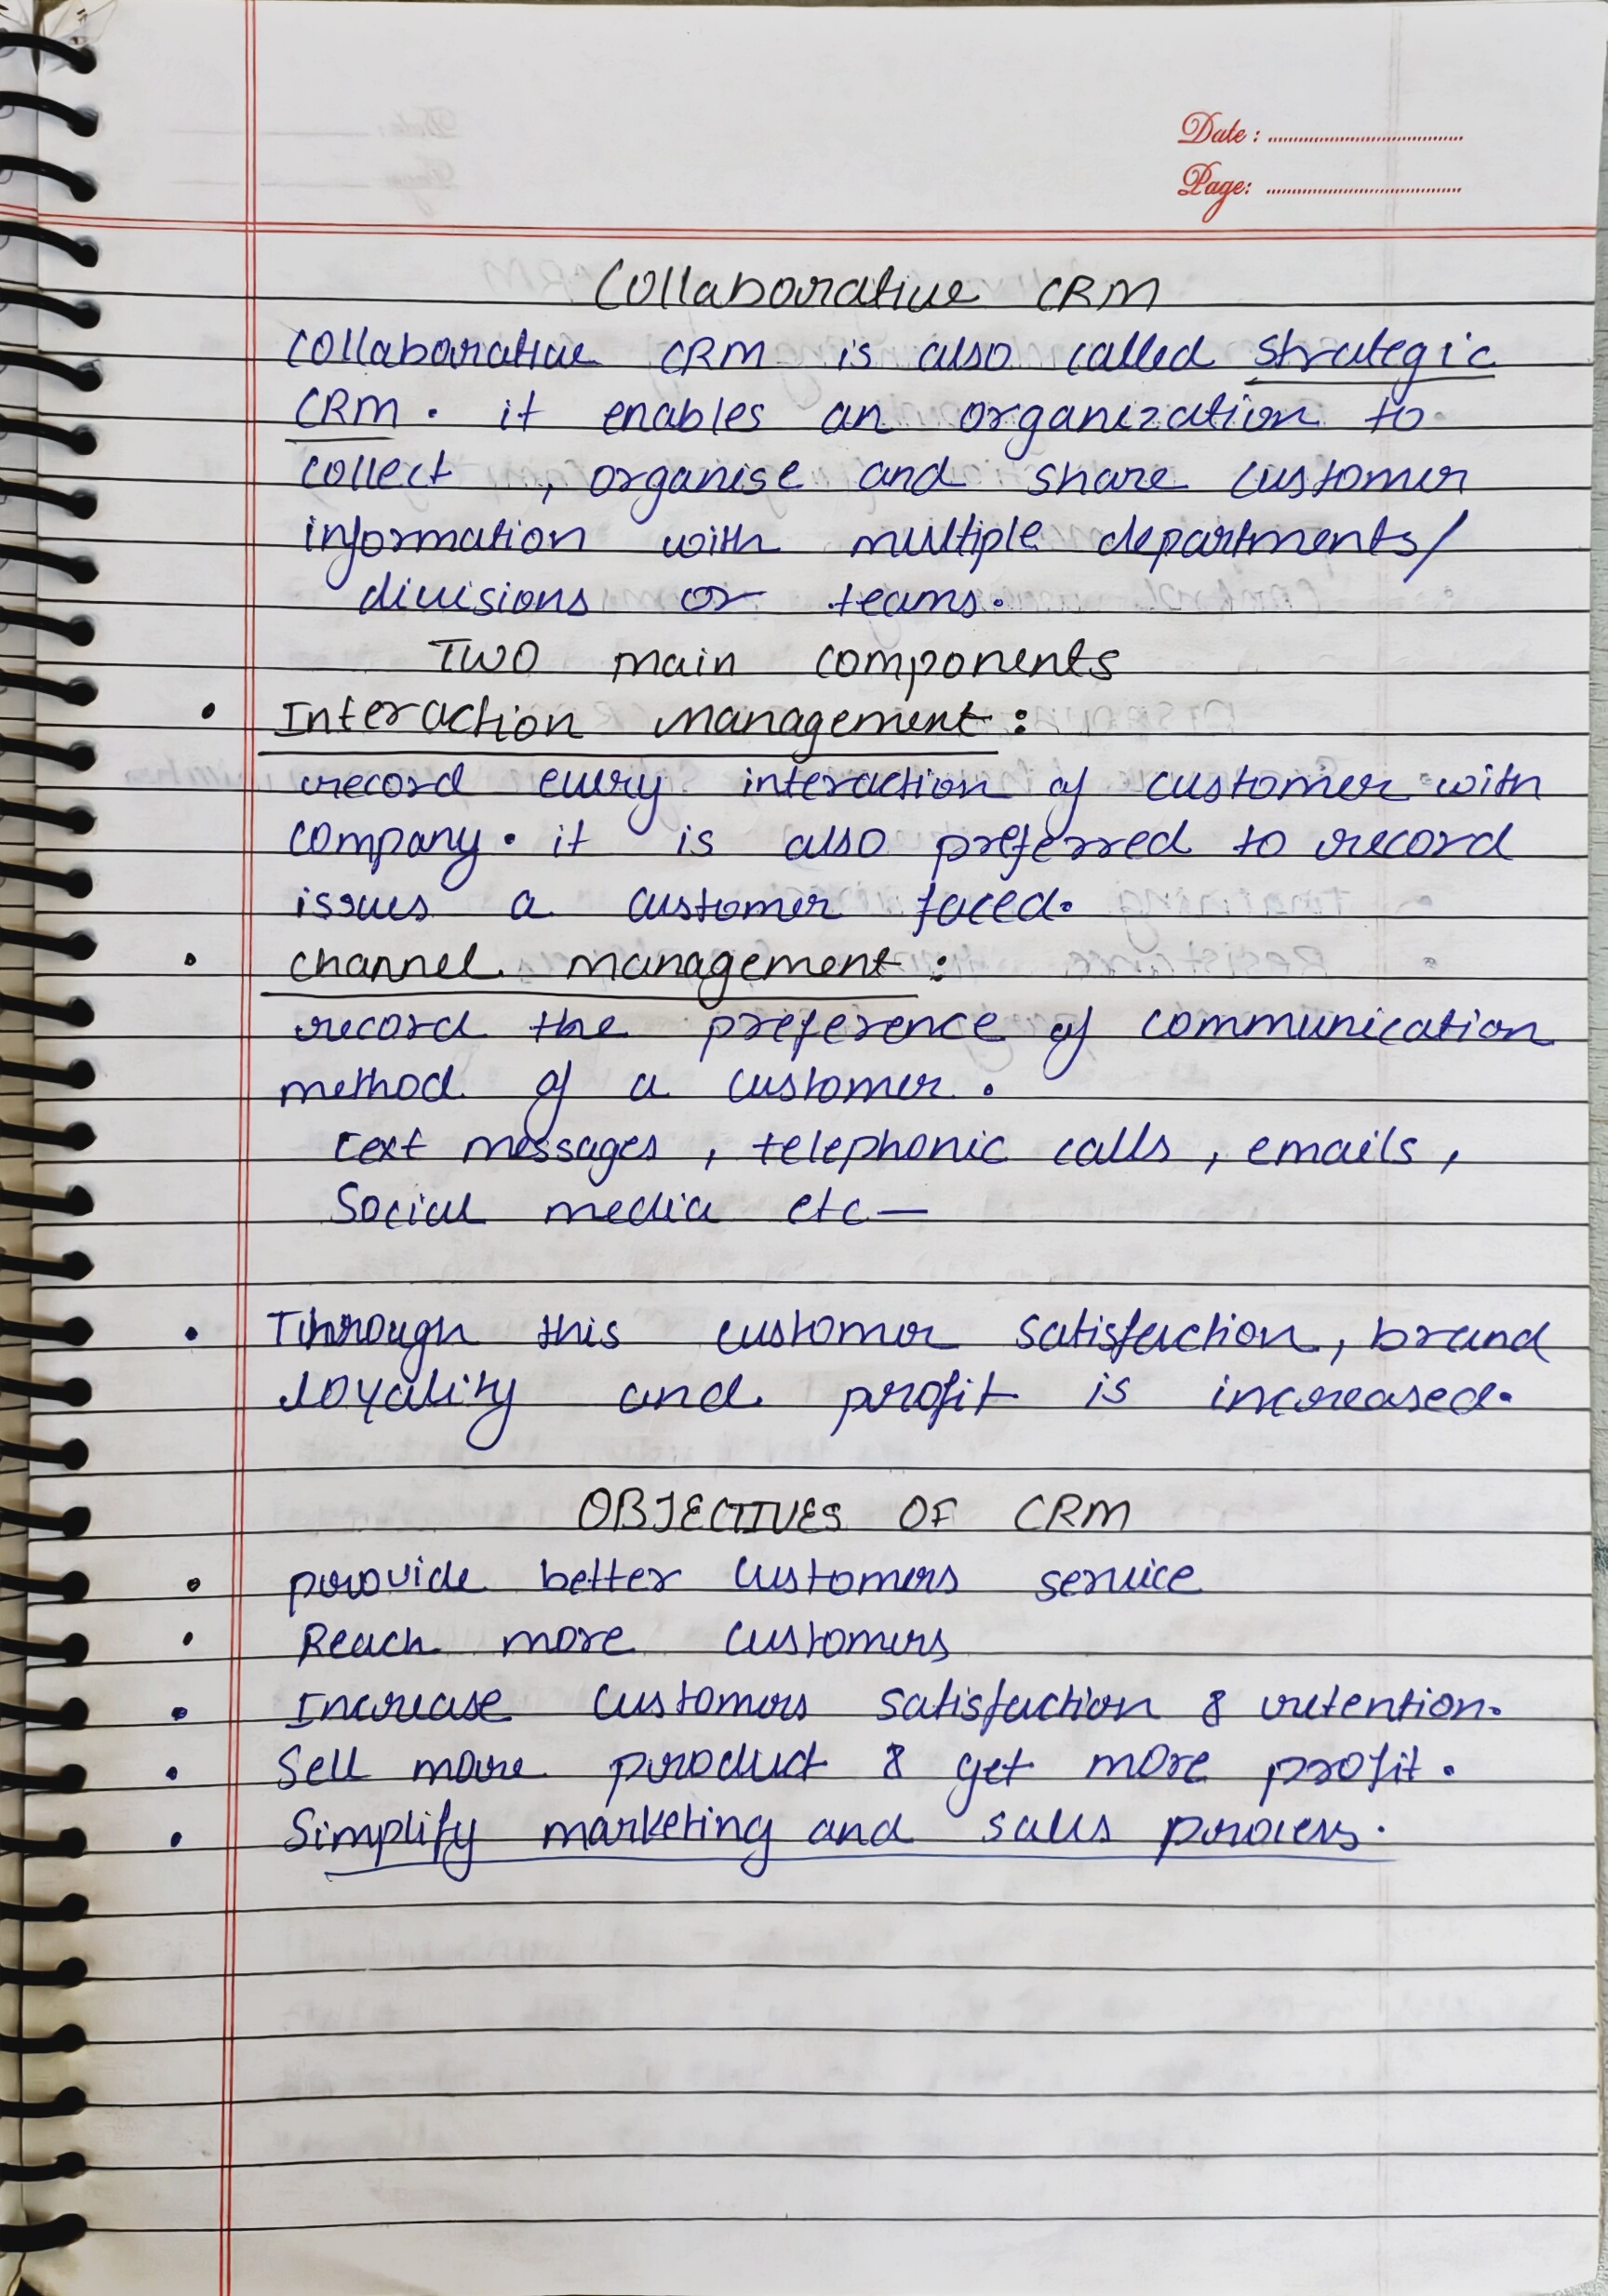 Date :
Page:
Collaborative CRM
Collaborative CRM is also called strategic
CRM. it enables an organization to
collect , organise and share customer
information with multiple departments/
divisions or teams.
TWO main components
• Interaction Management :
record every interaction of customer with
company. it is also preferred to record
issues a customer faced.
• channel management :
record the preference of communication
method of a customer.
text messages , telephonic calls , emails ,
Social media etc —
• Through this customer satisfaction, brand
loyality and profit is increased.
OBJECTIVES OF CRM
• provide better customers service
• Reach more customers
• Increase customers satisfaction & retention.
• Sell more product & get more profit.
• Simplify marketing and sales process.